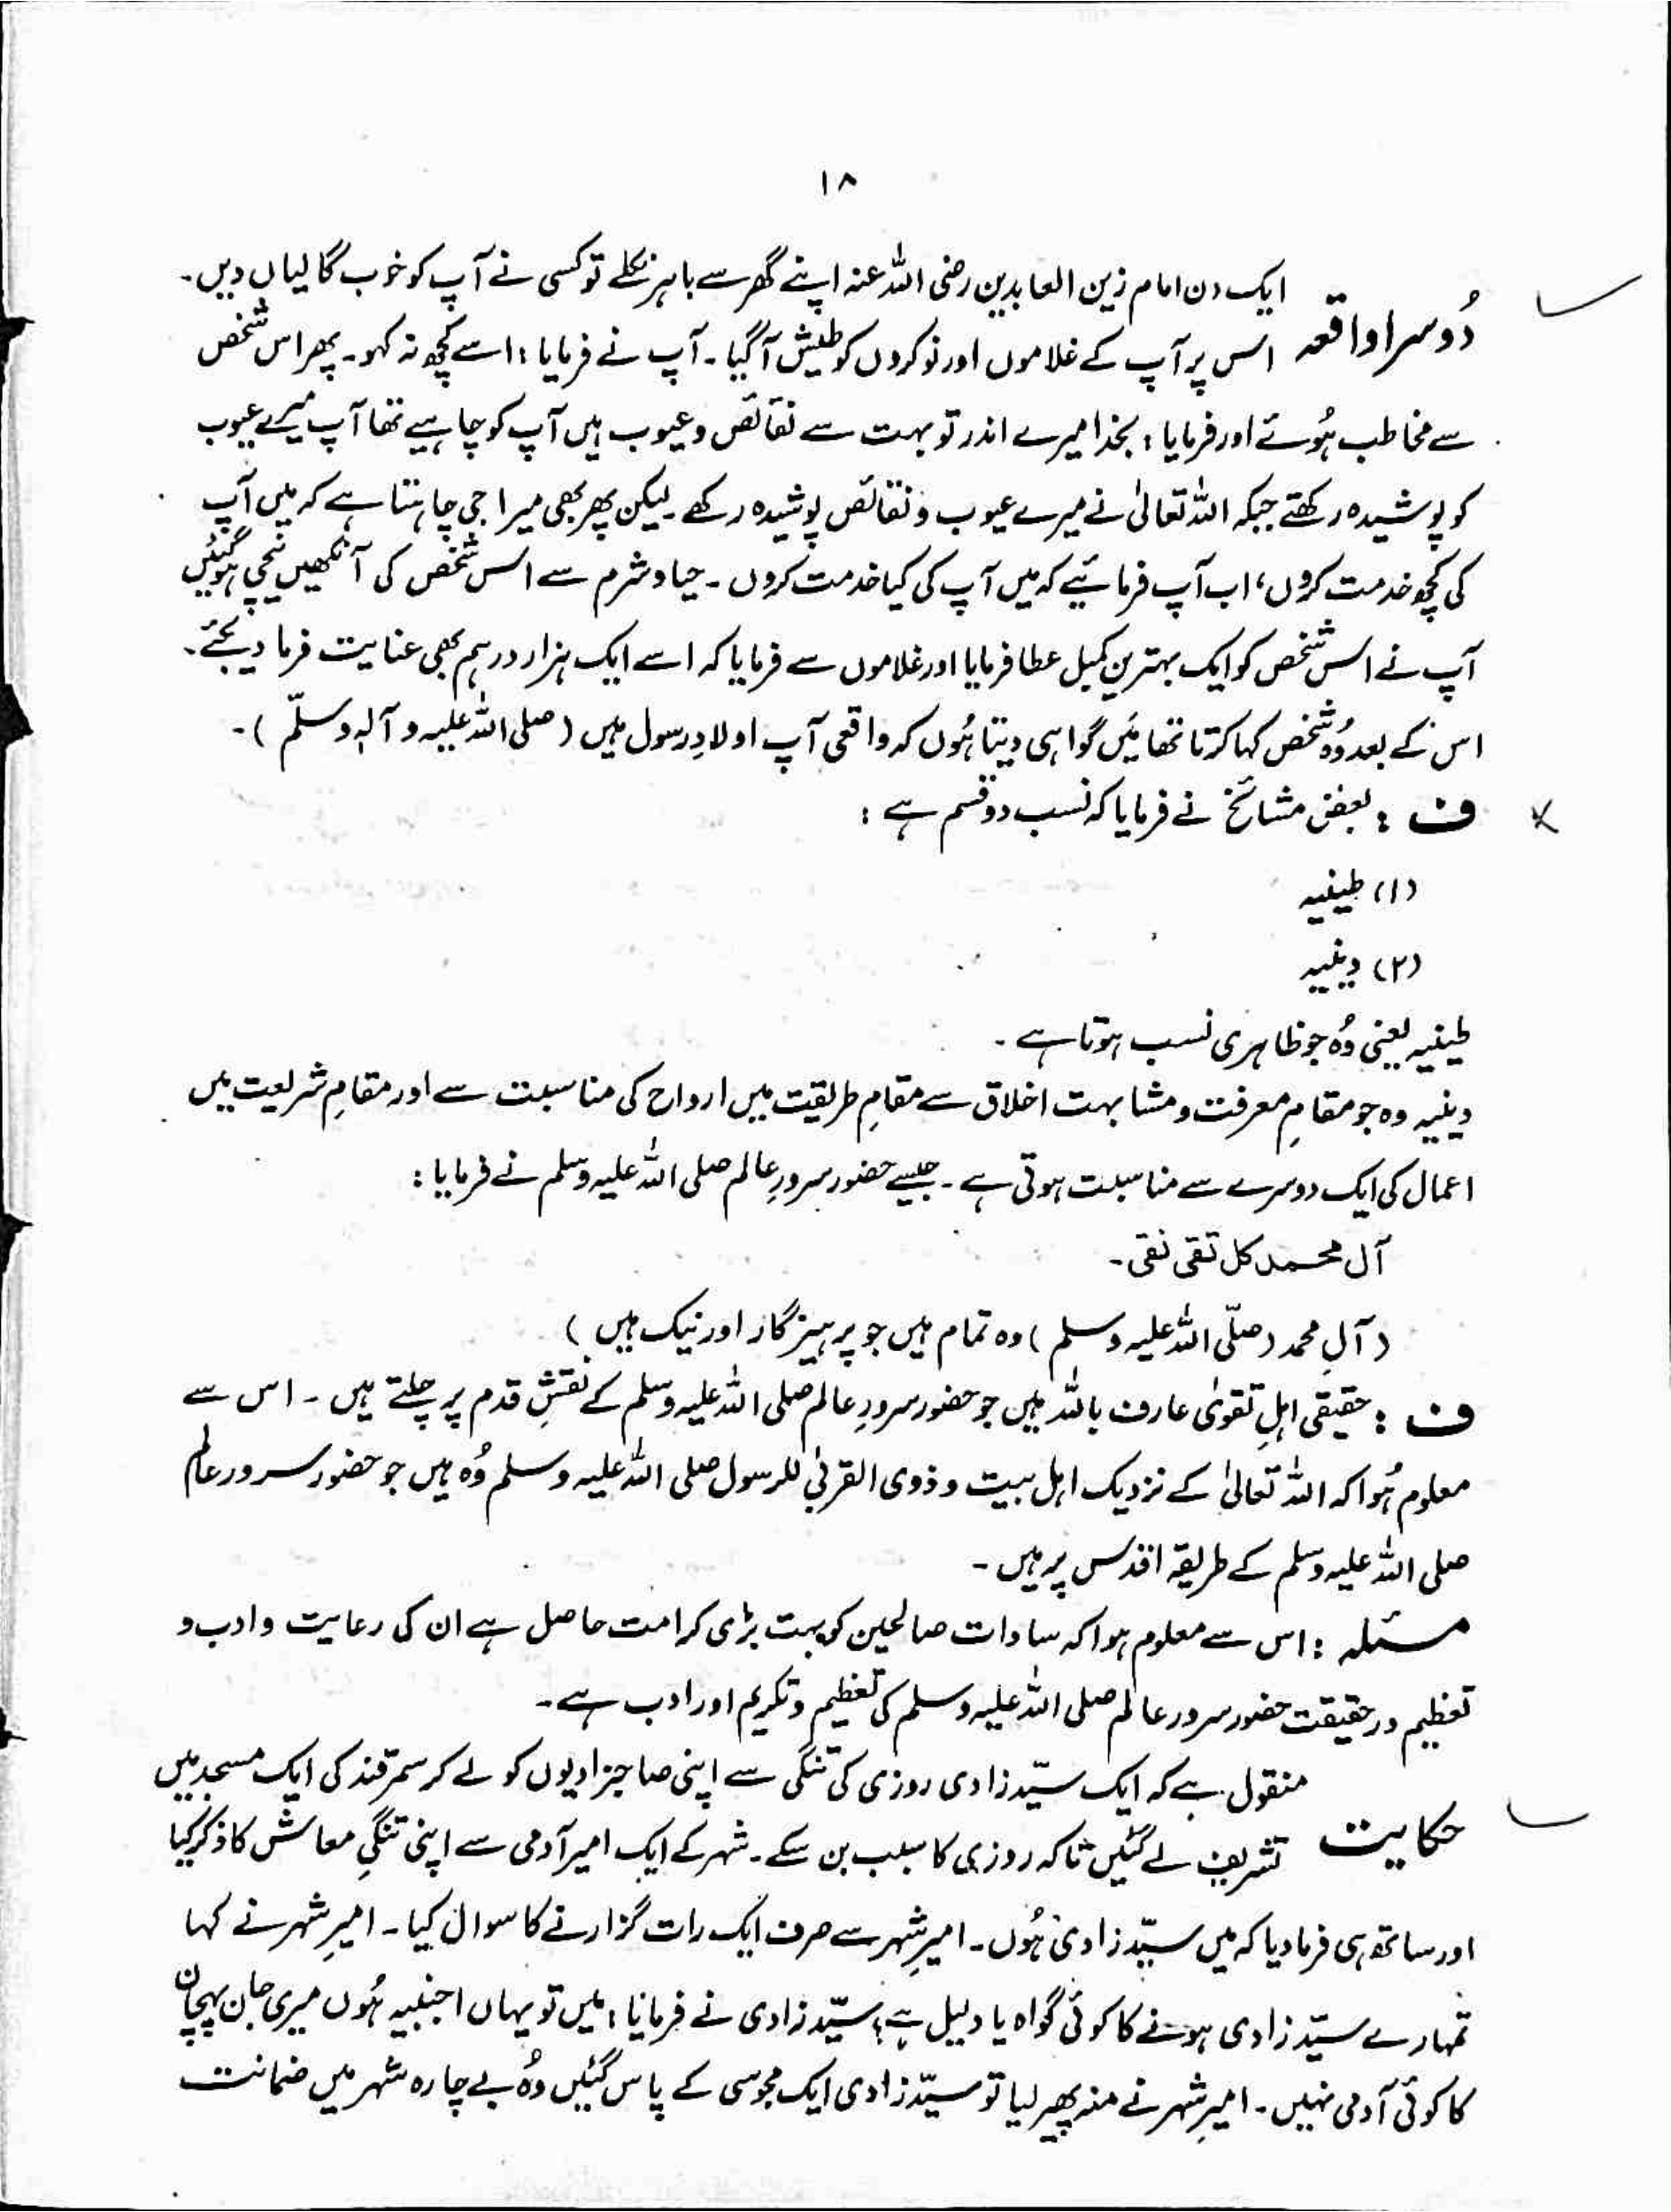 ۱۸
ایک دن امام زین العابدین رضی اللہ عنہ اپنے گھر سے باہر نکلے تو کسی نے آپ کو خوب گالیاں دیں۔
دُوسرا واقعہ
اس پر آپ کے غلاموں اور نوکروں کو طیش آگیا۔ آپ نے فرمایا: اسے کچھ نہ کہو۔ پھر اس شخص
سے مخاطب ہُوئے اور فرمایا: بخدا میرے اندر تو بہت سے نقائص و عیوب ہیں آپ کو چاہیے تھا آپ میرے عیوب
کو پوشیدہ رکھتے جبکہ اللہ تعالیٰ نے میرے عیوب و نقائص پوشیدہ رکھے لیکن پھر بھی میرا جی چاہتا ہے کہ میں آپ
کی کچھ خدمت کروں، اب آپ فرمائیے کہ میں آپ کی کیا خدمت کروں۔ حیا و شرم سے اس شخص کی آنکھیں نیچی ہوگئیں
آپ نے اس شخص کو ایک بہترین کمبل عطا فرمایا اور غلاموں سے فرمایا کہ اسے ایک ہزار درہم بھی عنایت فرما دیجئے۔
اس کے بعد وُہ شخص کہا کرتا تھا میَں گواہی دیتا ہُوں کہ واقعی آپ اولادِ رسول ہیں (صلی اللہ علیہ و آلہٖ وسلّم)۔
ف : بعض مشائخ نے فرمایا کہ نسب دو قسم ہے :
(۱) طینیہ
(۲) دینیہ
طینیہ یعنی وُہ جو ظاہری نسب ہوتا ہے۔
دینیہ وہ جو مقامِ معرفت و مشابہت اخلاق سے مقامِ طریقت میں ارواح کی مناسبت سے اور مقامِ شریعت میں
اعمال کی ایک دوسرے سے مناسبت ہوتی ہے۔ جیسے حضور سرورِ عالم صلی اللہ علیہ وسلم نے فرمایا :
آل محمد کل تقی نقی۔
(آلِ محمد (صلّی اللہ علیہ وسلم) وہ تمام ہیں جو پرہیزگار اور نیک ہیں)
ف : حقیقی اہلِ تقویٰ عارف باللہ ہیں جو حضور سرورِ عالم صلی اللہ علیہ وسلم کے نقشِ قدم پر چلتے ہیں۔ اس سے
معلوم ہُوا کہ اللہ تعالیٰ کے نزدیک اہل بیت و ذوی القربیٰ للرسول صلی اللہ علیہ وسلم وُہ ہیں جو حضور سرور عالم
صلی اللہ علیہ وسلم کے طریقہ اقدس پر ہیں۔
مسئلہ : اس سے معلوم ہوا کہ سادات صالحین کو بہت بڑی کرامت حاصل ہے ان کی رعایت و ادب و
تعظیم درحقیقت حضور سرور عالم صلی اللہ علیہ وسلم کی تعظیم و تکریم اور ادب ہے۔
منقول ہے کہ ایک سیّد زادی روزی کی تنگی سے اپنی صاحبزادیوں کو لے کر سمرقند کی ایک مسجد میں
حکایت
تشریف لے گئیں تاکہ روزی کا سبب بن سکے۔ شہر کے ایک امیر آدمی سے اپنی تنگیِ معاش کا ذکر کیا
اور ساتھ ہی فرما دیا کہ میں سیّد زادی ہُوں۔ امیرِ شہر سے صرف ایک رات گزارنے کا سوال کیا۔ امیرِ شہر نے کہا
تمہارے سیّد زادی ہونے کا کوئی گواہ یا دلیل ہے؟ سیّد زادی نے فرمایا: میں تو یہاں اجنبیہ ہُوں میری جان پہچان
کا کوئی آدمی نہیں۔ امیرِ شہر نے منہ پھیر لیا تو سیّد زادی ایک مجوسی کے پاس گئیں وُہ بے چارہ شہر میں ضمانت